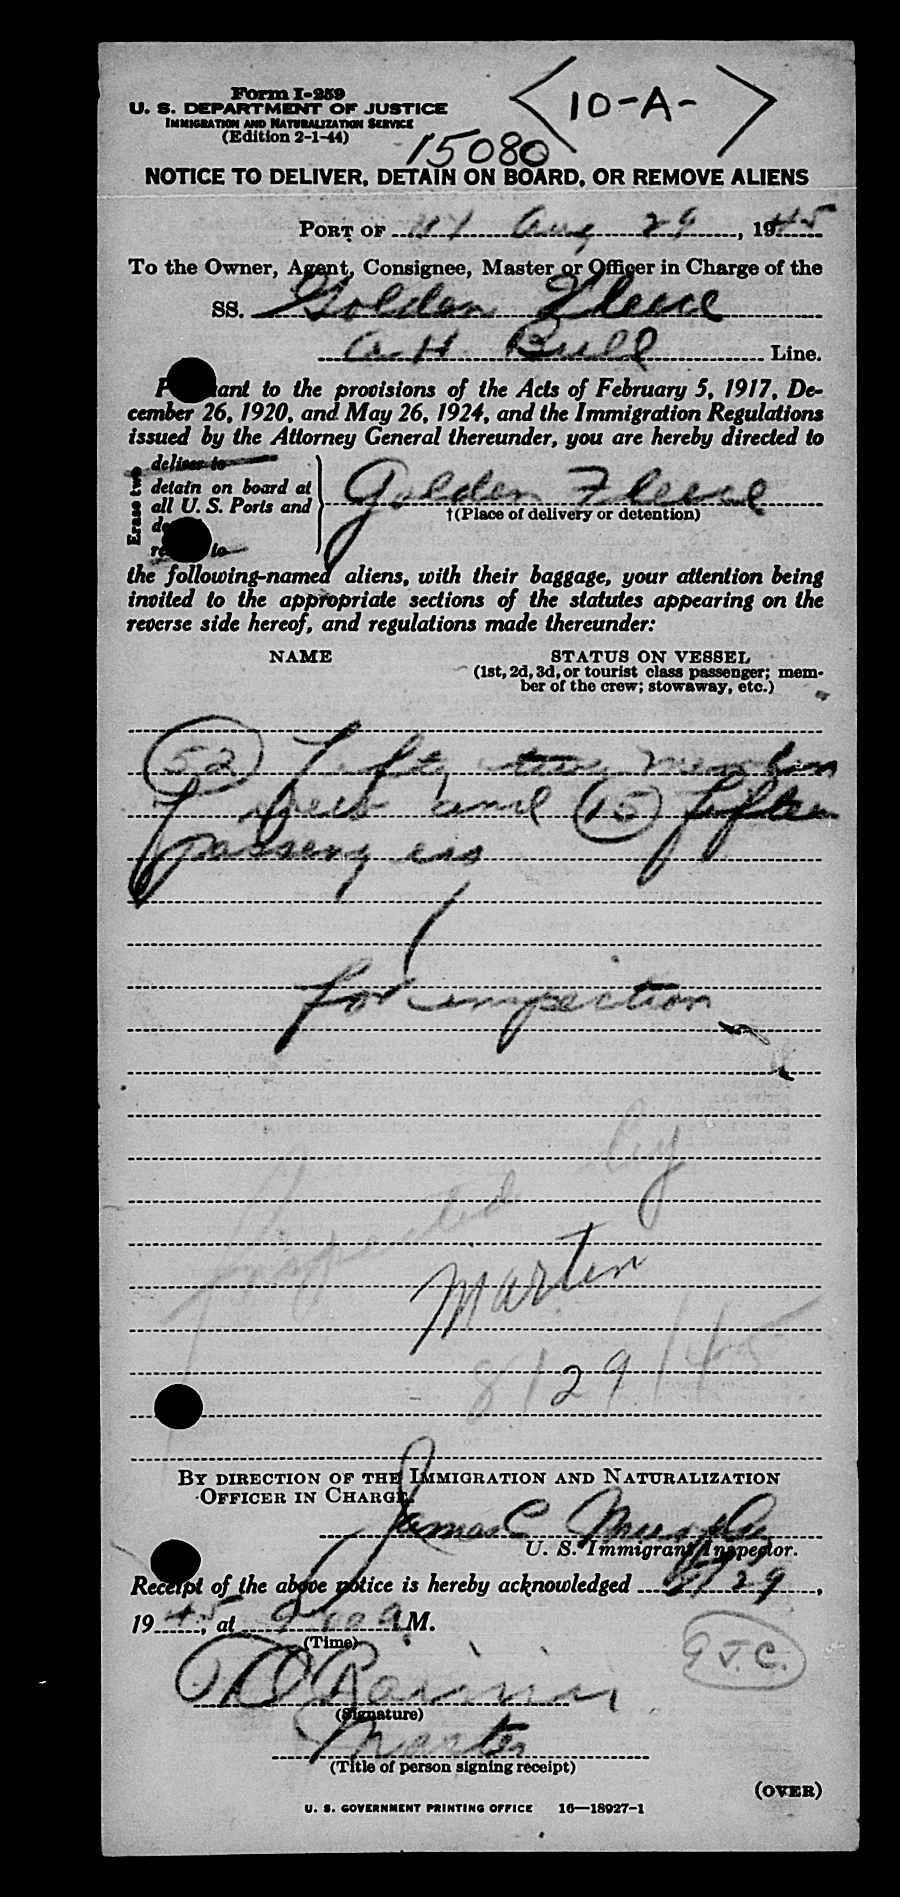 Form I-259
U. S. DEPARTMENT OF JUSTICE
IMMIGRATION AND NATURALIZATION SERVICE
(Edition 2-1-44)
<10-A->
15080
NOTICE TO DELIVER, DETAIN ON BOARD, OR REMOVE ALIENS
PORT OF NY Aug 29, 1945
To the Owner, Agent, Consignee, Master or Officer in Charge of the
SS. Golden Fleece
A. H. Bull Line.
Pursuant to the provisions of the Acts of February 5, 1917, De-
cember 26, 1920, and May 26, 1924, and the Immigration Regulations
issued by the Attorney General thereunder, you are hereby directed to
Erase two
deliver to
detain on board at
all U. S. Ports and
to
Golden Fleece
†(Place of delivery or detention)
the following-named aliens, with their baggage, your attention being
invited to the appropriate sections of the statutes appearing on the
reverse side hereof, and regulations made thereunder:
NAME STATUS ON VESSEL
(1st, 2d, 3d, or tourist class passenger; mem-
ber of the crew; stowaway, etc.)
52 Fifty two members
crew and 15 fifteen
passengers
for inspection
Inspected by
Martin
8/29/45
BY DIRECTION OF THE IMMIGRATION AND NATURALIZATION
OFFICER IN CHARGE.
James C Murphy
U. S. Immigrant Inspector.
Receipt of the above notice is hereby acknowledged 8/29,
1945, at 9 00 a M.
(Time)
G J. C.
(Signature)
Master
(Title of person signing receipt)
(OVER)
U. S. GOVERNMENT PRINTING OFFICE 16—18927-1